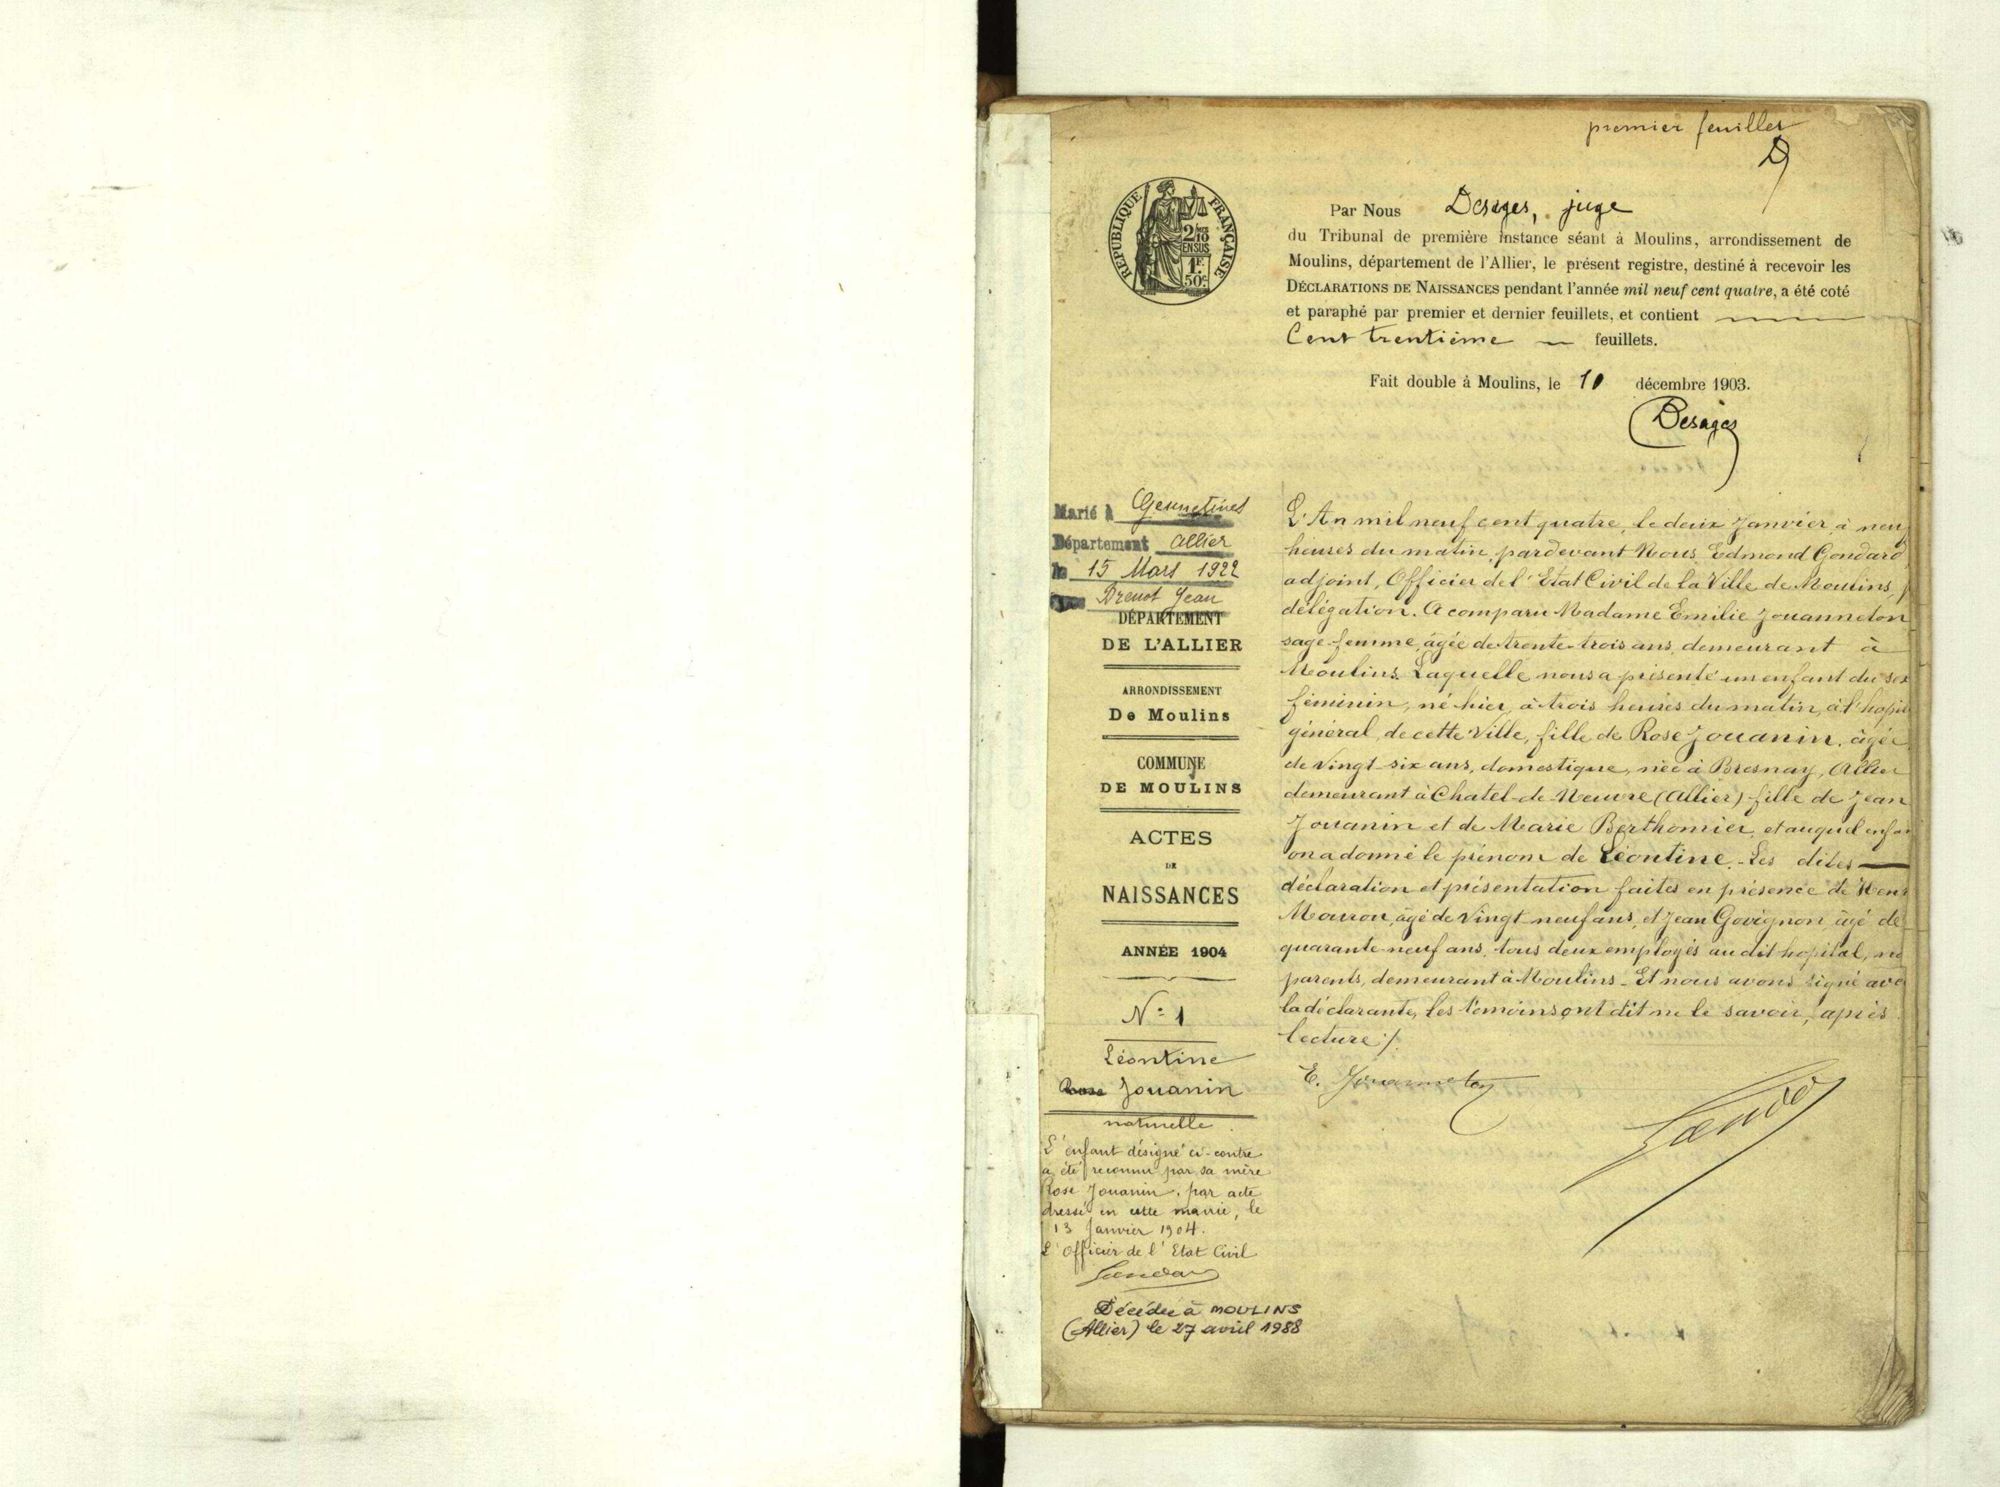 premier feuillet
RÉPUBLIQUE FRANÇAISE
2/10
EN SUS
1F.
50c.
Par Nous Desages, juge
du Tribunal de première instance séant à Moulins, arrondissement de
Moulins, département de l'Allier, le présent registre, destiné à recevoir les
DÉCLARATIONS DE NAISSANCES pendant l'année mil neuf cent quatre, a été coté
et paraphé par premier et dernier feuillets, et contient
Cent trentième feuillets.
Fait double à Moulins, le 10 décembre 1903.
Desages
Marié à Gennetines
Département Allier
le 15 Mars 1922
Drenot Jean
DÉPARTEMENT
DE L'ALLIER
ARRONDISSEMENT
De Moulins
COMMUNE
DE MOULINS
ACTES
DE
NAISSANCES
ANNÉE 1904
N° 1
Léontine
Rose Jouanin
naturelle.
L'enfant désigné ci-contre
a été reconnu par sa mère
Rose Jouanin, par acte
dressé en cette mairie, le
13 Janvier 1904.
L'Officier de l'Etat Civil
Décédée à MOULINS
(Allier) le 27 avril 1988
L'An mil neuf cent quatre, le deux Janvier, à neuf
heures du matin, pardevant Nous Edmond Gondard
adjoint, Officier de l'Etat Civil de la Ville de Moulins,
délégation. A comparu Madame Emilie Jouanneton
sage-femme, âgée de trente-trois ans, demeurant à
Moulins, Laquelle nous a présenté un enfant du sex
féminin, né hier, à trois heures du matin, à l'hopi
général, de cette Ville, fille de Rose Jouanin, âgée
de vingt-six ans, domestique, née à Bresnay, Allier
demeurant à Chatel-de-Neuvre (Allier) fille de Jean
Jouanin et de Marie Berthomier, et auquel enfan
on a donné le prénom de Léontine. - Les dites
déclaration et présentation faites en présence de Henr
Mouron, âgé de Vingt-neuf ans, et Jean Govignon, âgé de
quarante-neuf ans, tous deux employés au dit hopital, no
parents, demeurant à Moulins - Et nous avons signé ave
la déclarante, les témoins ont dit ne le savoir, après
lecture /.
E. Jouanneton